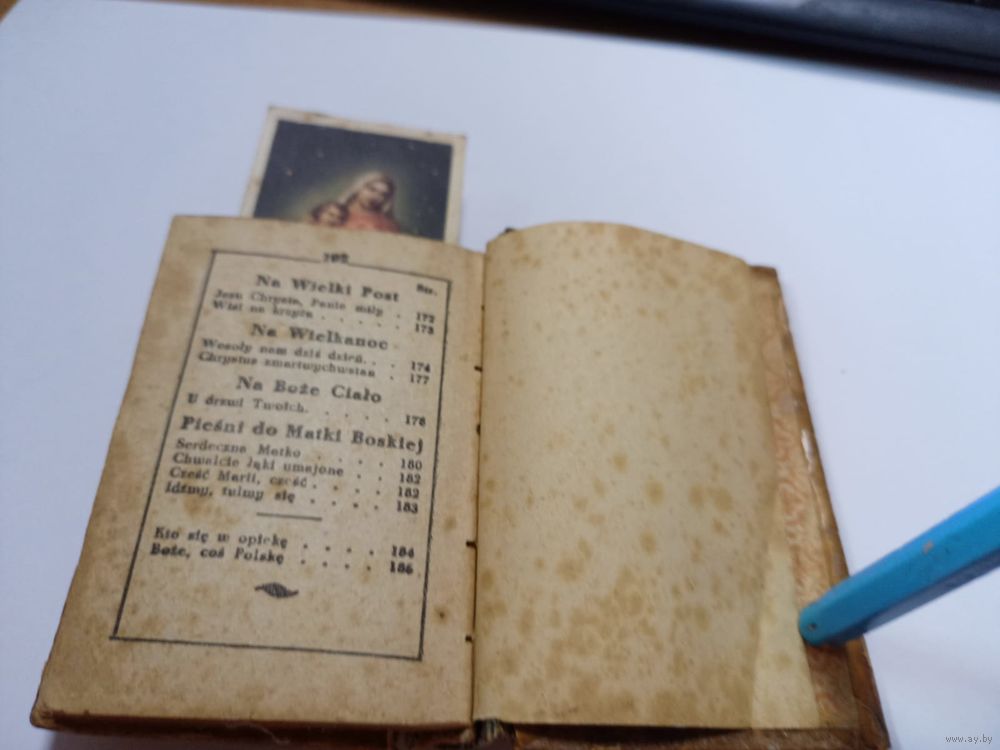 192
Str.
Na Wielki Post
Jezu Chryste, Panie miły . 172
Wisi na krzyżu . . . . . 173
Na Wielkanoc
Wesoły nam dziś dzień. . . 174
Chrystus zmartwychwstan . 177
Na Boże Ciało
U drzwi Twoich. . . . . . 178
Pieśni do Matki Boskiej
Serdeczna Matko . . . . 180
Chwalcie łąki umajone . . 182
Cześć Marii, cześć . . . . 182
Idźmy, tulmy się . . . . 183
Kto się w opiekę . . . . 184
Boże, coś Polskę . . . . 186
www.ay.by